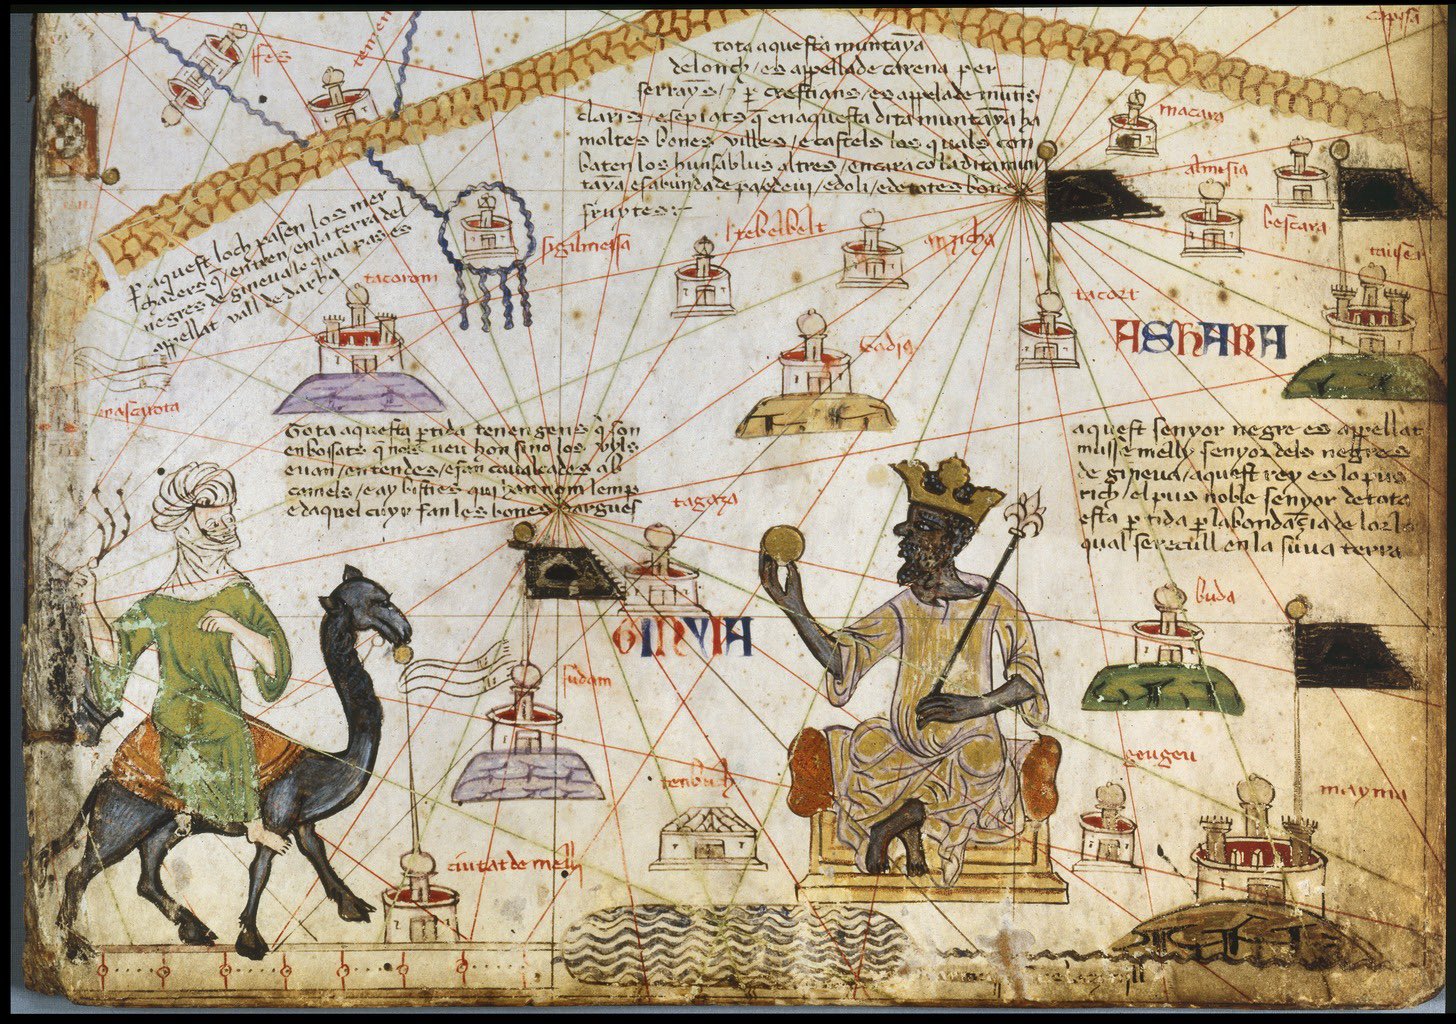 fes
tota aquesta muntaya
de lonch / es appellade carena per
serrayns / 7 p crestians / es appelade muntis
claris / e sepiats q en aquesta dita muntaya ha
moltes bones villes / e castels los quals con
baten los huns ab lus altres / encara com la dita mun
taya es abundade pa e de vi / e doli / e de totes bones
fruytes
macara
almsia
bescara
p aquest loch pasen los mer
chaders q entren en la terra del
negres de gineva le qual pas es
appellat vall de darha
sigilmessa
tebelbelt
anzicha
tacort
tacorom
ASHARA
Gota aquesta ptida tenen gens q son
enbossats q nols veu hom sino los uyls
e van en tendes / e fan cavalcades ab
camels / e ay bisties qui han nom lemp
e daquel cuyr fan les bones dargues
aquest senyor negre es appellat
musse melly senyor dels negres
de gineva / aquest rey es lo pus
rich / el pus noble senyor de tota
esta ptida p labondacia de lor lo
qual se recull en la suua terra
tagaza
GINYIA
buda
sudam
tenbuch
geugeu
mayma
ciutat de melli